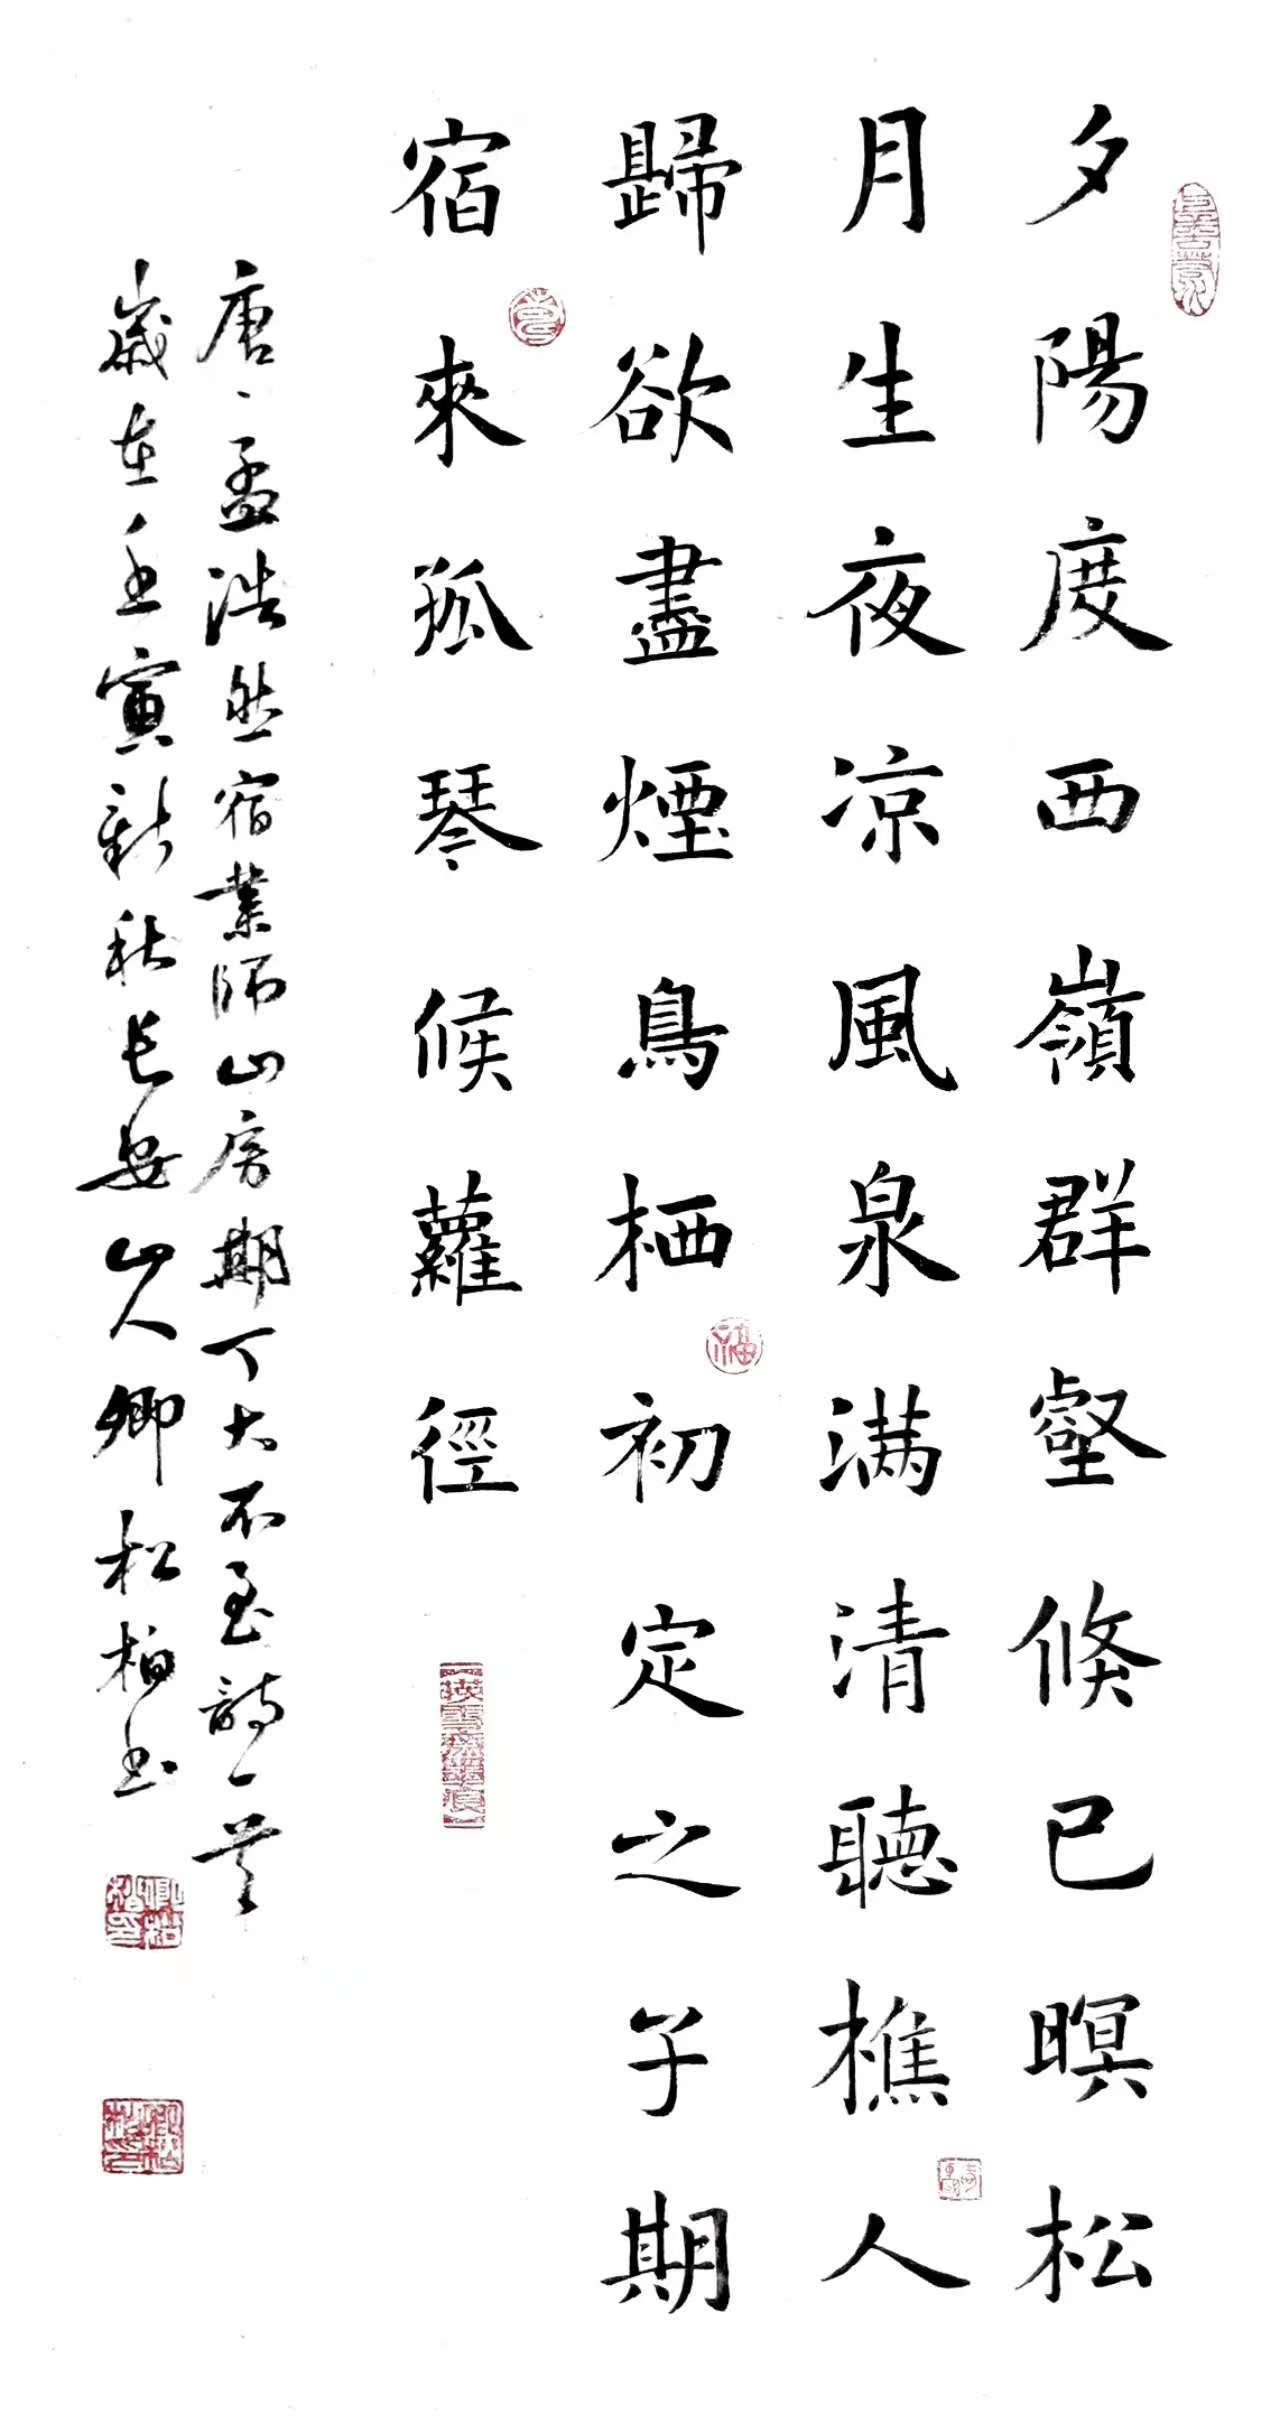 夕陽度西嶺群壑倏已暝松
月生夜凉風泉满清聽樵人
歸欲盡煙鳥栖初定之子期
宿來孤琴候蘿徑
唐、孟浩然宿業師山房期丁大不至詩一首
歲在壬寅新秋長安山人卿松柏书
福